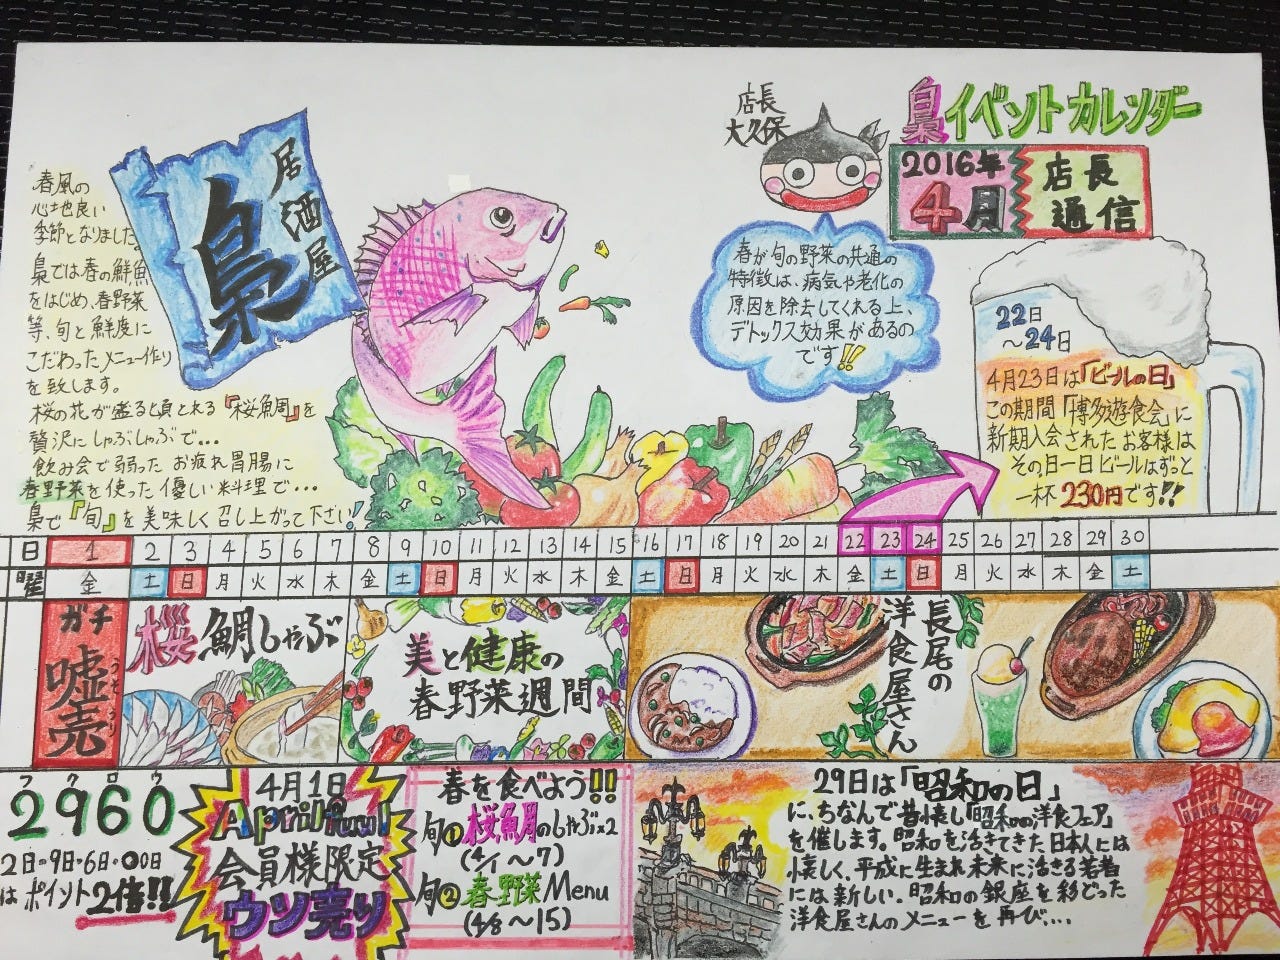 春風の
心地良い
季節となりました。
梟では春の鮮魚
をはじめ、春野菜
等、旬と鮮度に
こだわったメニュー作り
を致します。
桜の花が盛る頃とれる『桜鯛』を
贅沢にしゃぶしゃぶで…
飲み会で弱ったお疲れ胃腸に
春野菜を使った優しい料理で…
梟で『旬』を美味しく召し上がって下さい!
居酒屋
梟
店長
大久保
春が旬の野菜の共通の
特徴は、病気や老化の
原因を除去してくれる上、
デトックス効果があるの
です!!
梟イベントカレンダー
2016年
4月
店長
通信
22日
～24日
4月23日は「ビールの日」
この期間「博多遊食会」に
新期入会されたお客様は
その日一日ビールはずっと
一杯230円です!!
日 1 2 3 4 5 6 7 8 9 10 11 12 13 14 15 16 17 18 19 20 21 22 23 24 25 26 27 28 29 30
曜 金 土 日 月 火 水 木 金 土 日 月 火 水 木 金 土 日 月 火 水 木 金 土 日 月 火 水 木 金 土
ガチ
嘘売
うそうり
桜鯛しゃぶ
美と健康の
春野菜週間
長尾の
洋食屋さん
フクロウ
2960
2日・9日・6日・●0日
はポイント2倍!!
4月1日
April fuul
会員様限定
ウソ売り
春を食べよう!!
旬①桜鯛のしゃぶ×2
(4/1～7)
旬②春野菜Menu
(4/8～15)
29日は「昭和の日」
に、ちなんで昔懐し「昭和の洋食フェア」
を催します。昭和を活きてきた日本人には
懐しく、平成に生まれ未来に活きる若者
には新しい。昭和の銀座を彩どった
洋食屋さんのメニューを再び…